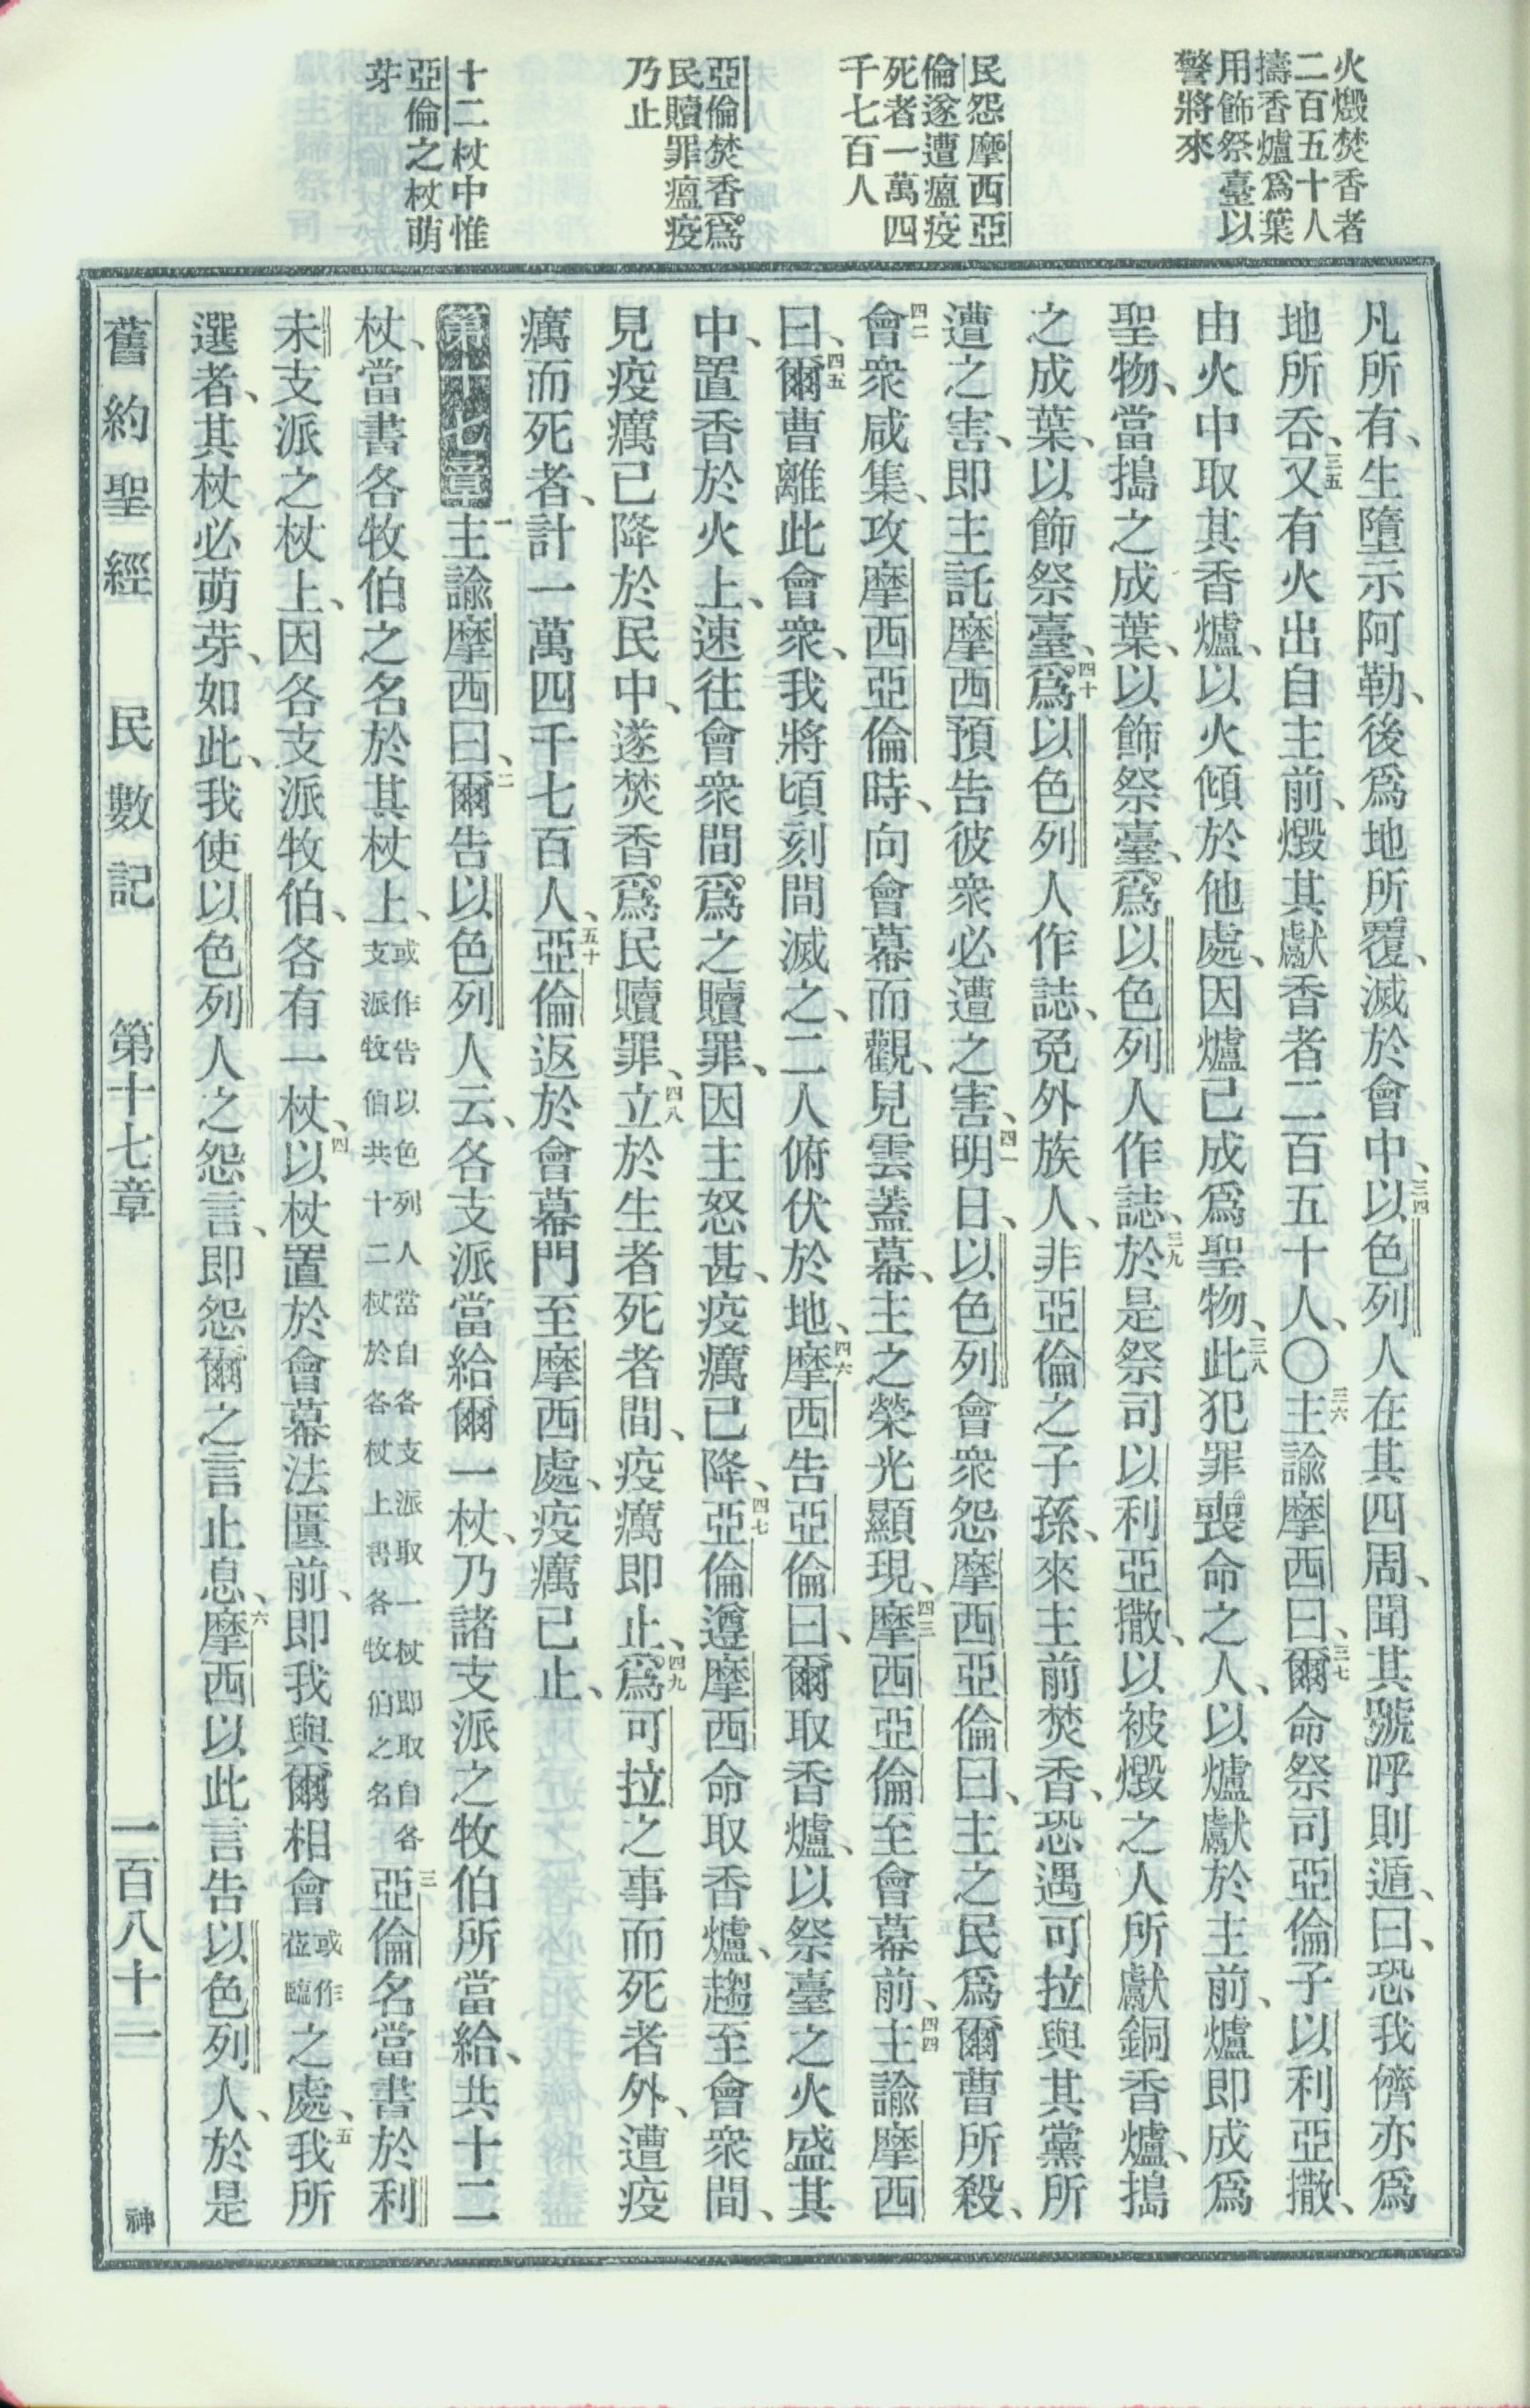 火燬焚香者
二百五十人
擣香爐爲葉
用飾祭臺以
警將來
民怨摩西亞
倫遂遭瘟疫
死者一萬四
千七百人
亞倫焚香爲
民贖罪瘟疫
乃止
十二杖中惟
亞倫之杖萌
芽
凡所有、生墮示阿勒、後爲地所覆、滅於會中、三四以色列人在其四周、聞其號呼則遁、曰、恐我儕亦爲
地所吞、三五又有火出自主前、燬其獻香者二百五十人、〇三六主諭摩西曰、三七爾命祭司亞倫子以利亞撒、
由火中取其香爐、以火傾於他處、因爐已成爲聖物、三八此犯罪喪命之人、以爐獻於主前、爐即成爲
聖物、當搗之成葉、以飾祭臺、爲以色列人作誌、三九於是祭司以利亞撒、以被燬之人所獻銅香爐、搗
之成葉、以飾祭臺、四十爲以色列人作誌、免外族人、非亞倫之子孫、來主前焚香、恐遇可拉與其黨所
遭之害、即主託摩西預告彼衆必遭之害、四一明日、以色列會衆怨摩西亞倫曰、主之民爲爾曹所殺、
四二會衆咸集、攻摩西亞倫時、向會幕而觀、見雲蓋幕、主之榮光顯現、四三摩西亞倫至會幕前、四四主諭摩西
曰、四五爾曹離此會衆、我將頃刻間滅之、二人俯伏於地、四六摩西告亞倫曰、爾取香爐、以祭臺之火盛其
中、置香於火上、速往會衆間、爲之贖罪、因主怒甚、疫癘已降、四七亞倫遵摩西命取香爐、趨至會衆間、
見疫癘已降於民中、遂焚香、爲民贖罪、四八立於生者死者間、疫癘即止、四九爲可拉之事而死者外、遭疫
癘而死者、計一萬四千七百人、五十亞倫返於會幕門至摩西處、疫癘已止、
第十七章一主諭摩西曰、二爾告以色列人云、各支派當給爾一杖、乃諸支派之牧伯所當給、共十二
杖、當書各牧伯之名於其杖上、或作告以色列人當自各支派取一杖即取自各支派牧伯共十二杖於各杖上書各牧伯之名三亞倫名當書於利
未支派之杖上、因各支派牧伯、各有一杖、四以杖置於會幕法匱前、即我與爾相會或作蒞臨之處、五我所
選者、其杖必萌芽、如此、我使以色列人之怨言、即怨爾之言止息、六摩西以此言告以色列人、於是
舊約聖經 民數記 第十七章 一百八十一 神